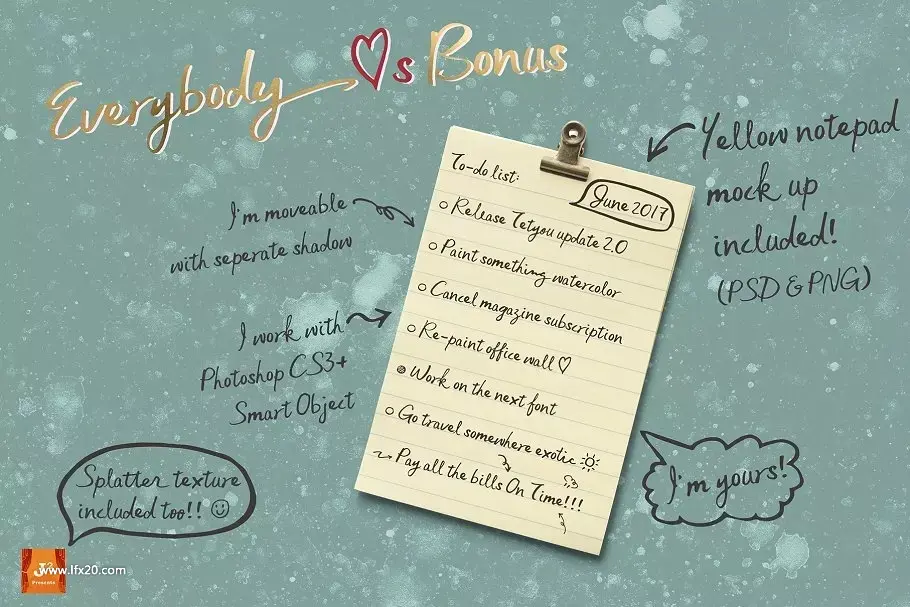 Everybody ♡s Bonus
Yellow notepad
mock up
included!
(PSD & PNG)
I'm moveable
with seperate shadow
I work with
Photoshop CS3+
Smart Object
To-do list:
June 2017
Release Tetyou update 2.0
Paint something watercolor
Cancel magazine subscription
Re-paint office wall ♡
Work on the next font
Go travel somewhere exotic
Pay all the bills On Time!!!
Splatter texture
included too!! ☺
I'm yours!
www.lfx20.com
Presents